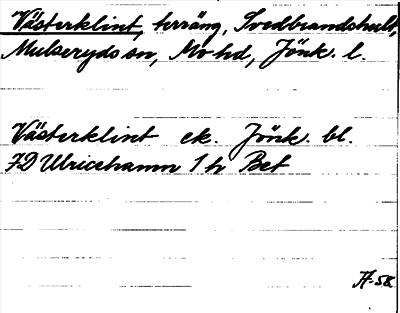 Västerklint, terräng, Svedbrandshult,
Mulseryds sn, Mo hd, Jönk. l.
Västerklint ek. Jönk. bl.
7D Ulricehamn 1 h Bet